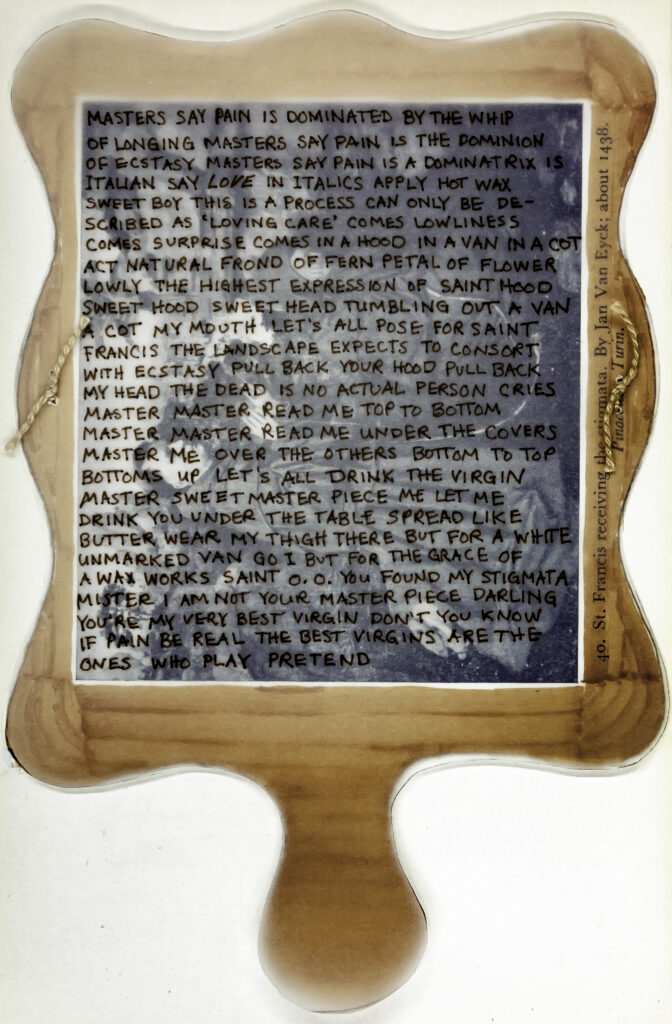 MASTERS SAY PAIN IS DOMINATED BY THE WHIP
OF LONGING MASTERS SAY PAIN IS THE DOMINION
OF ECSTASY MASTERS SAY PAIN IS A DOMINATRIX IS
ITALIAN SAY LOVE IN ITALICS APPLY HOT WAX
SWEET BOY THIS IS A PROCESS CAN ONLY BE DE-
SCRIBED AS 'LOVING CARE' COMES LOWLINESS
COMES SURPRISE COMES IN A HOOD IN A VAN IN A COT
ACT NATURAL FROND OF FERN PETAL OF FLOWER
LOWLY THE HIGHEST EXPRESSION OF SAINT HOOD
SWEET HOOD SWEET HEAD TUMBLING OUT A VAN
A COT MY MOUTH LET'S ALL POSE FOR SAINT
FRANCIS THE LANDSCAPE EXPECTS TO CONSORT
WITH ECSTASY PULL BACK YOUR HOOD PULL BACK
MY HEAD THE DEAD IS NO ACTUAL PERSON CRIES
MASTER MASTER READ ME TOP TO BOTTOM
MASTER MASTER READ ME UNDER THE COVERS
MASTER ME OVER THE OTHERS BOTTOM TO TOP
BOTTOMS UP LET'S ALL DRINK THE VIRGIN
MASTER SWEET MASTER PIECE ME LET ME
DRINK YOU UNDER THE TABLE SPREAD LIKE
BUTTER WEAR MY THIGH THERE BUT FOR A WHITE
UNMARKED VAN GO I BUT FOR THE GRACE OF
A WAX WORKS SAINT O.O. YOU FOUND MY STIGMATA
MISTER I AM NOT YOUR MASTER PIECE DARLING
YOU'RE MY VERY BEST VIRGIN DON'T YOU KNOW
IF PAIN BE REAL THE BEST VIRGINS ARE THE
ONES WHO PLAY PRETEND
40. St. Francis receiving the stigmata. By Jan Van Eyck; about 1438.
Turin.